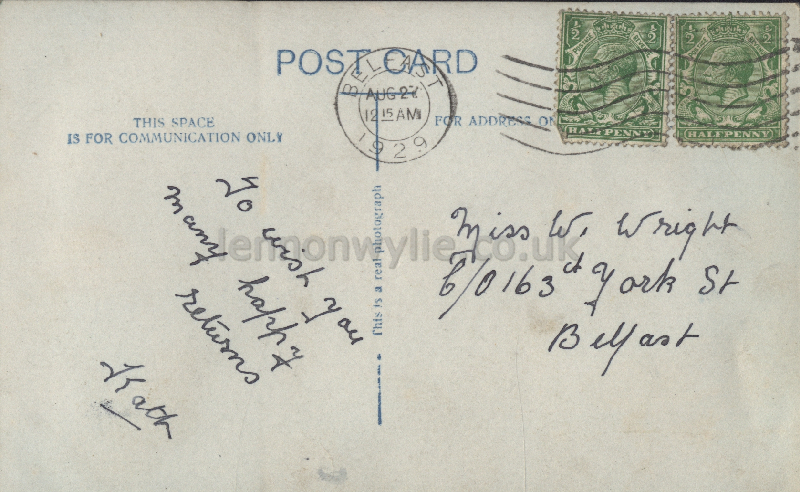 POST CARD
BELFAST
AUG 27
12 15 AM
1929
½ ½
HALFPENNY
½ ½
HALFPENNY
THIS SPACE
IS FOR COMMUNICATION ONLY
FOR ADDRESS ON
This is a real photograph
To wish you
many happy
returns
Kath
Miss W. Wright
C/O 163 York St
Belfast
lennonwylie.co.uk